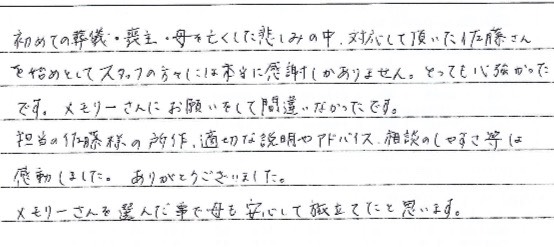 初めての葬儀・喪主・母を亡くした悲しみの中、対応して頂いた佐藤さん
を始めとしてスタッフの方々には本当に感謝しかありません。とっても心強かった
です。メモリーさんにお願いをして間違いなかったです。
担当の佐藤様の所作、適切な説明やアドバイス、相談のしやすさ等は
感動しました。ありがとうございました。
メモリーさんを選んだ事で母も安心して旅立てたと思います。